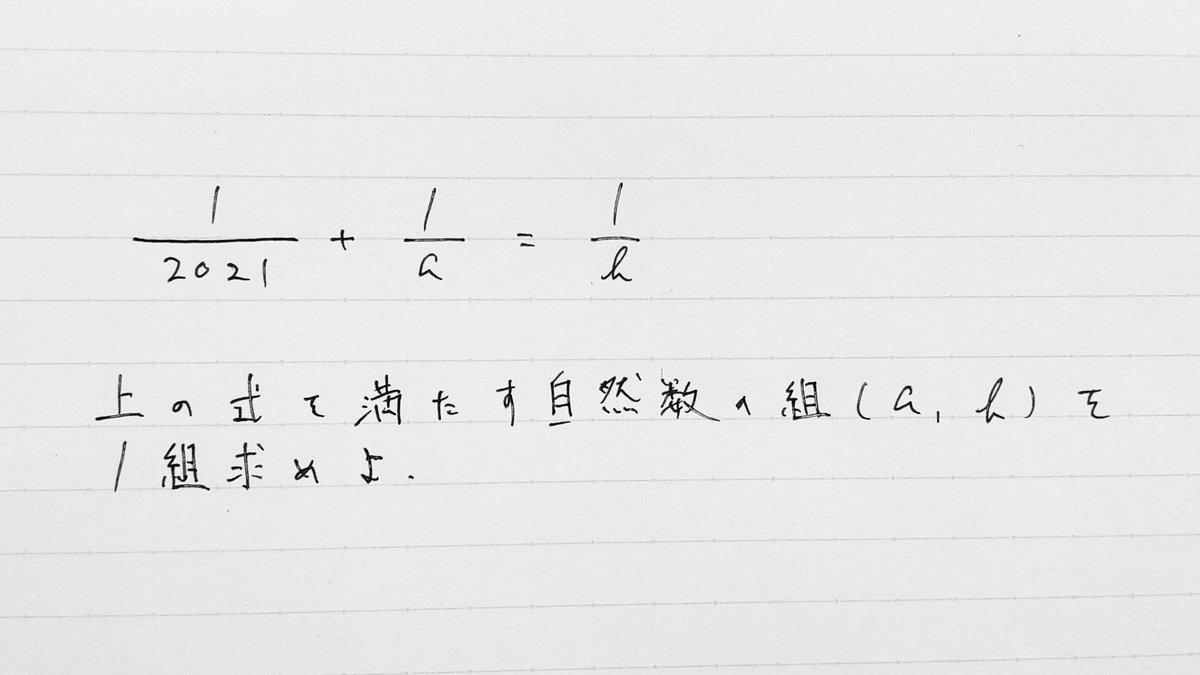 1/2021 + 1/a = 1/b
上の式を満たす自然数の組(a, b)を
1組求めよ.